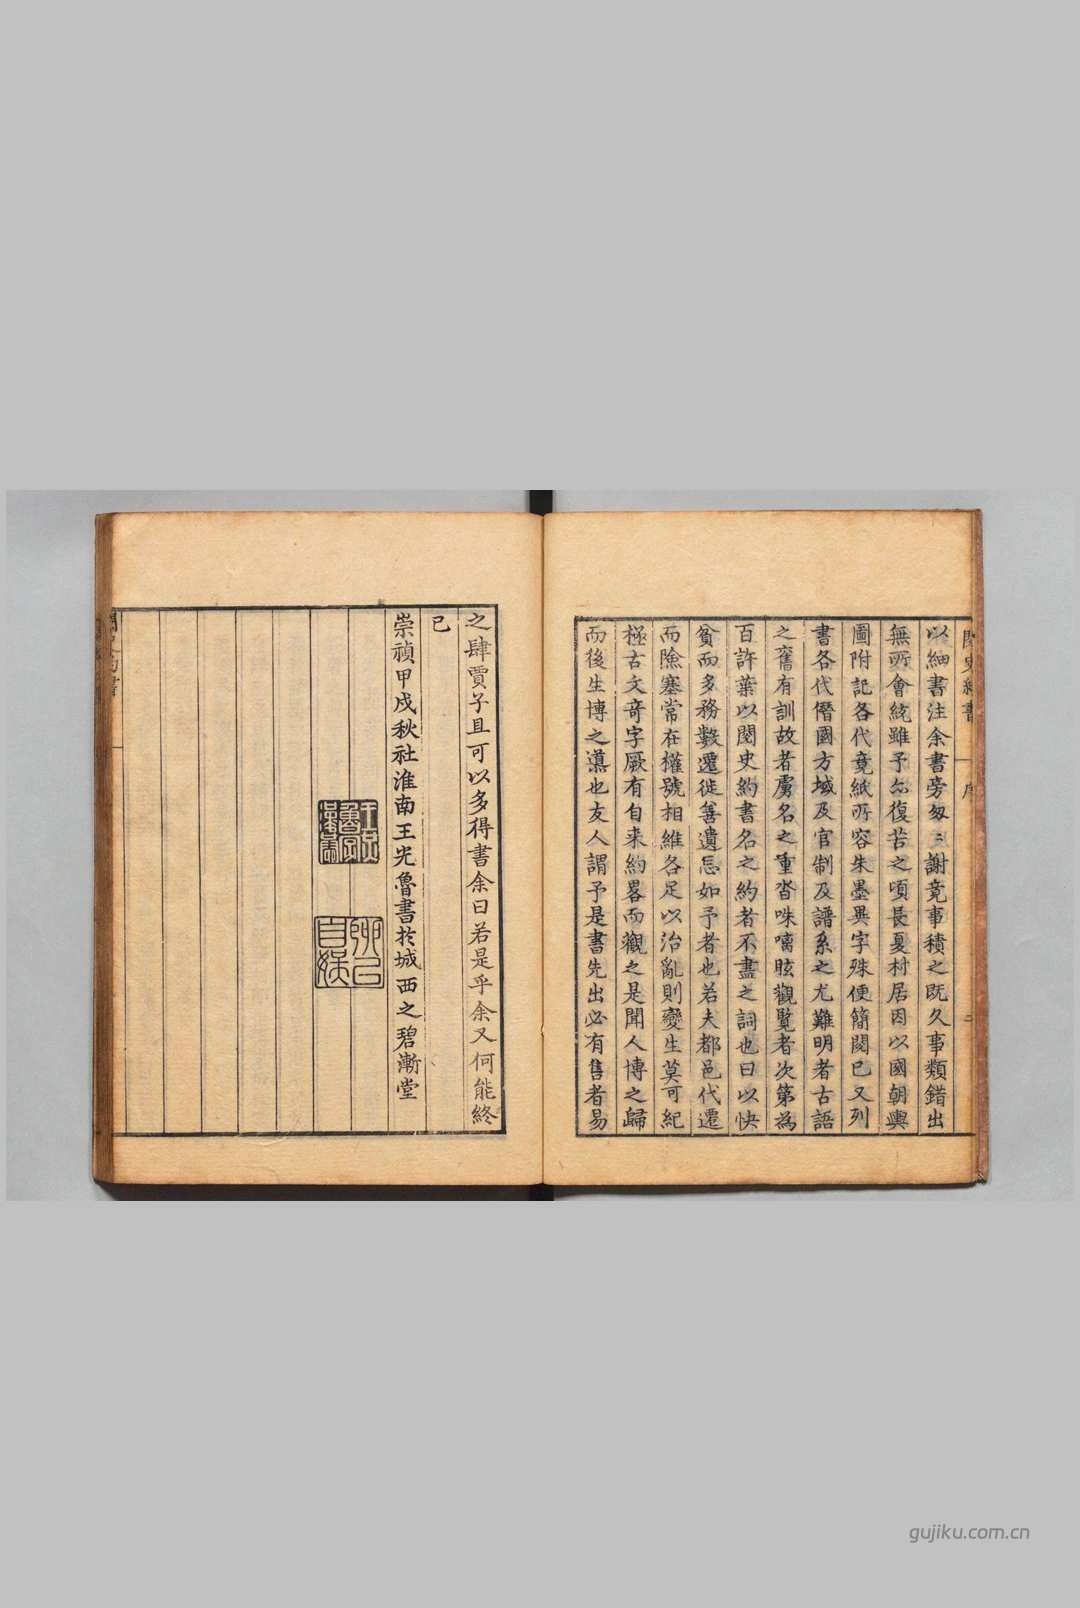 以細書注余書旁匆〻謝竟事積之旣久事類錯出
無所會統雖予亦復苦之頃長夏村居因以國朝輿
圖附記各代竟紙所容朱墨異字殊便簡閱已又列
書各代僭國方域及官制及譜系之尤難明者古語
之舊有訓故者虜名之重沓咮𠼪眩觀覽者次第為
百許葉以閱史約書名之約者不盡之詞也曰以快
貧而多務數遷徙善遺忘如予者也若夫都邑代遷
而險塞常在權號相維各足以治亂則變生莫可紀
極古文奇字厥有自来約畧而觀之是聞人博之歸
而後生博之導也友人謂予是書先出必有售者易
閱史約書 序 二
之肆賈子且可以多得書余曰若是乎余又何能終
已
崇禎甲戌秋社淮南王光魯書於城西之碧漸堂
聊已自娛
gujiku.com.cn